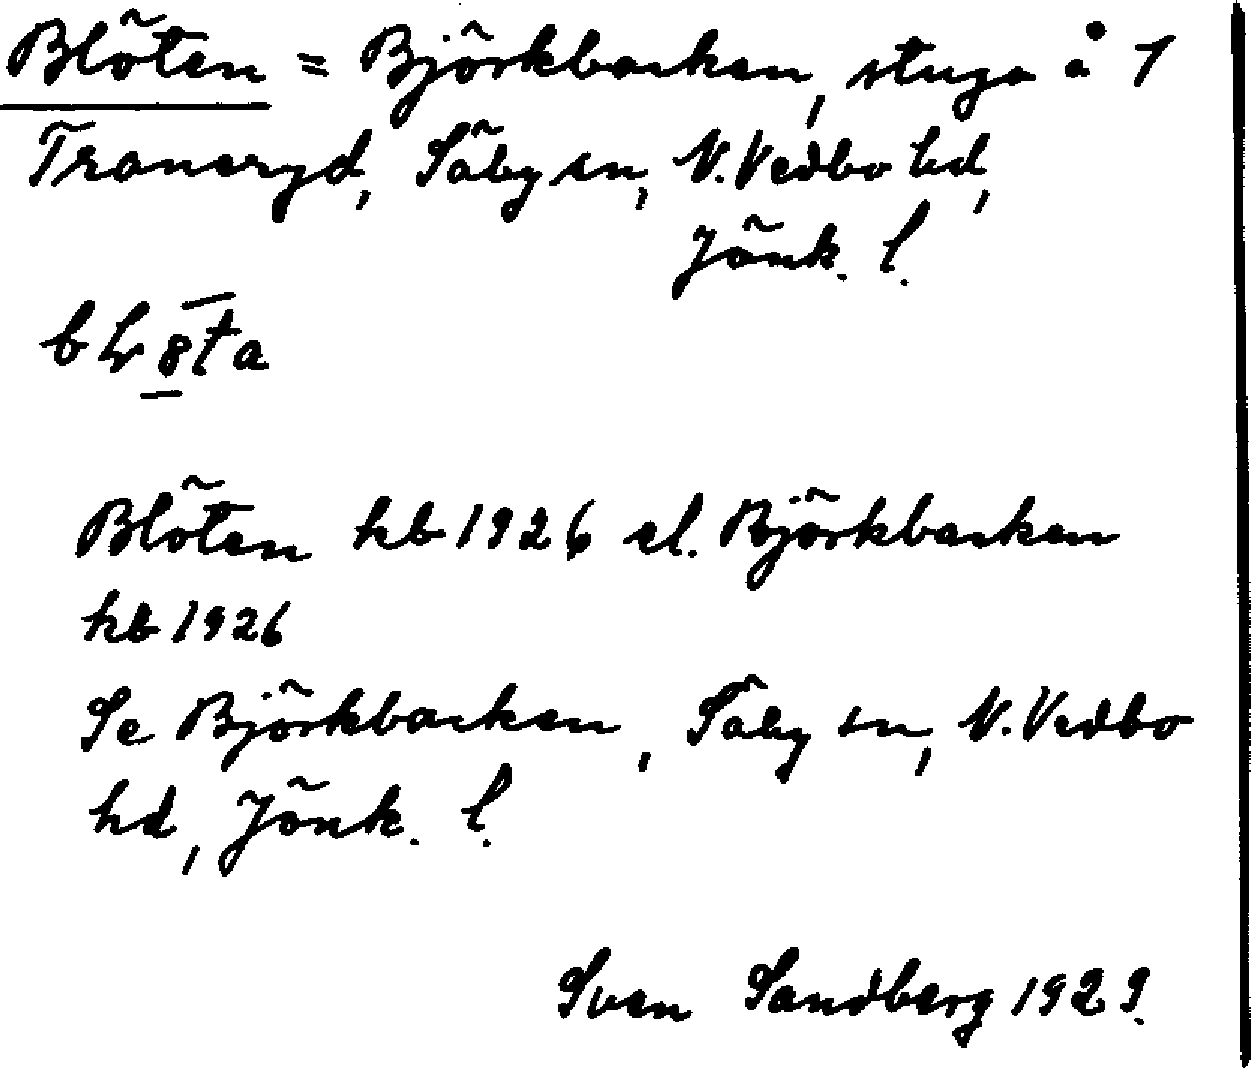 Blöten = Björkbacken, stuga å 1
Traneryd, Säby sn, N. Vedbo hd,
Jönk. l.
Blöten hb 1926 el. Björkbacken
hb 1926
Se Björkbacken, Säby sn, N. Vedbo
hd, Jönk. l.
Sven Sandberg 1929.